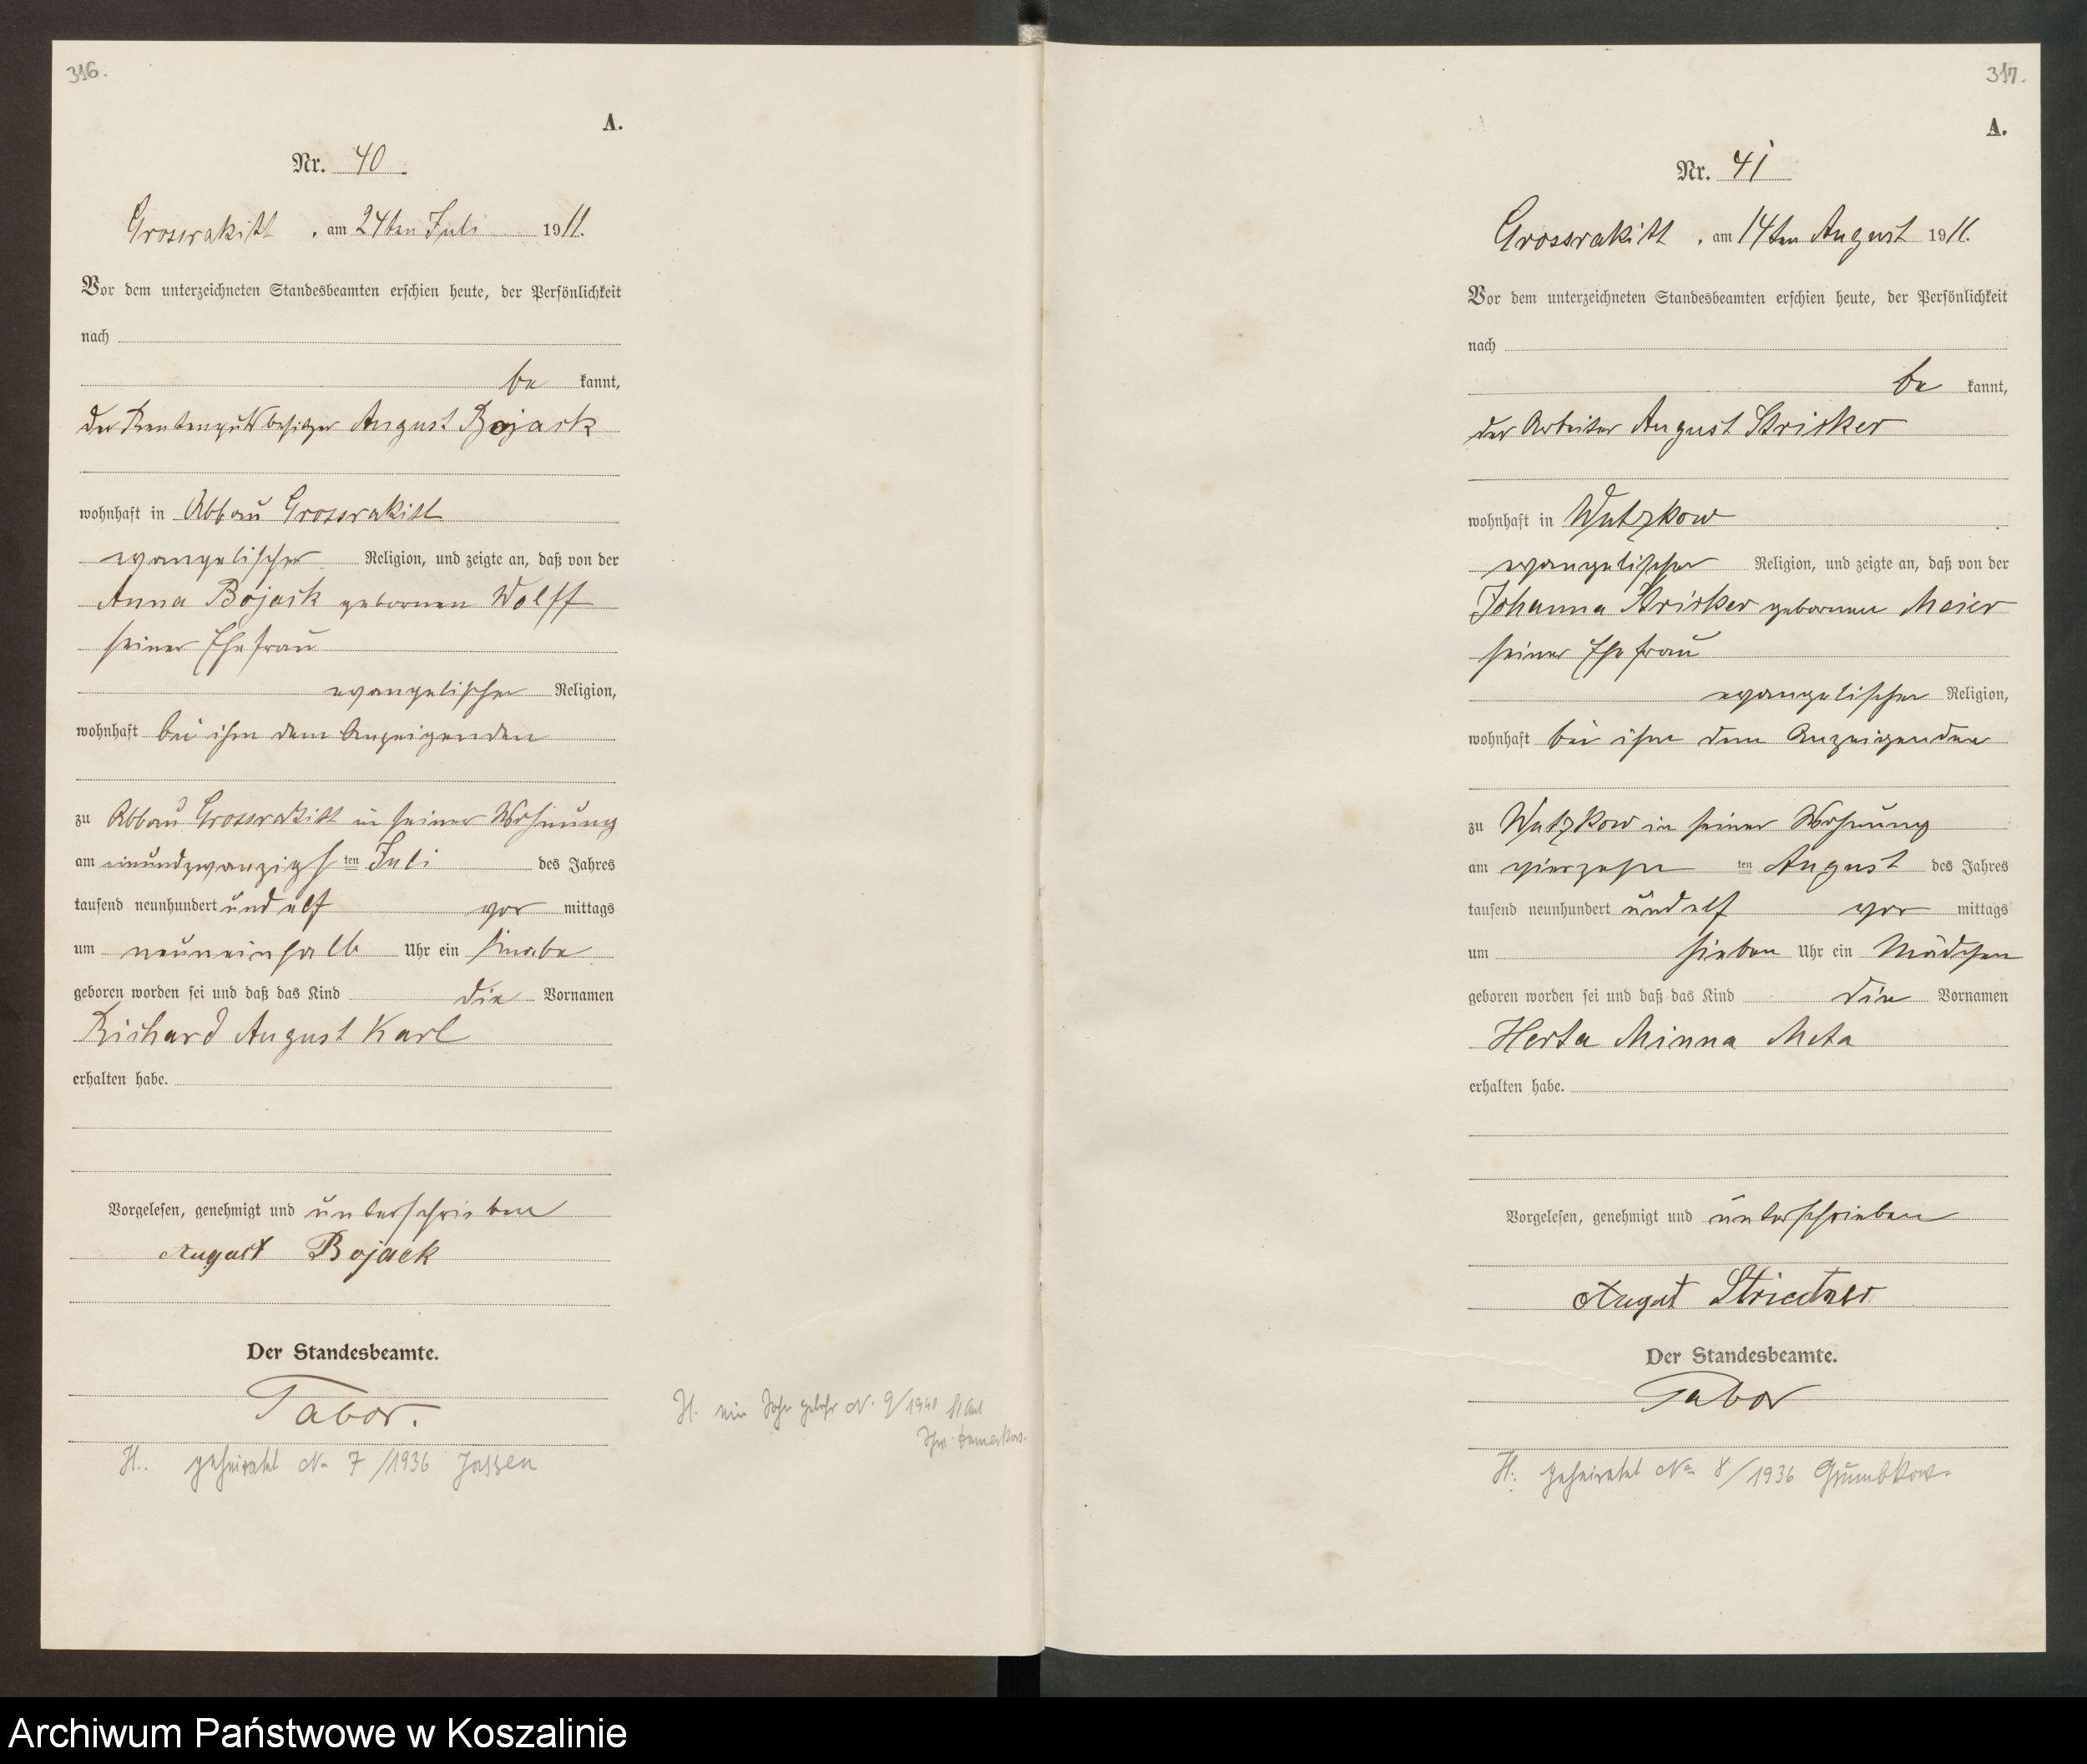 316.
A.
Nr. 40.
Grossrakitt, am 24ten Juli 1911.
Vor dem unterzeichneten Standesbeamten erschien heute, der Persönlichkeit
nach
be kannt,
der Rentengutsbesitzer August Bojack
wohnhaft in Abbau Grossrakitt
evangelischer Religion, und zeigte an, daß von der
Anna Bojack geborenen Wolff
seiner Ehefrau
evangelischer Religion,
wohnhaft bei ihm dem Anzeigenden
zu Abbau Grossrakitt in seiner Wohnung
am einundzwanzigsten Juli des Jahres
tausend neunhundert und elf vor mittags
um neuneinhalb Uhr ein Knabe
geboren worden sei und daß das Kind die Vornamen
Richard August Karl
erhalten habe.
Vorgelesen, genehmigt und unterschrieben
August Bojack
Der Standesbeamte.
Tabor.
H.. geheiratet No 7/1936 Jassen
H. ein Sohn gebor N. 9/1940
317.
A.
Nr. 41
Grossrakitt, am 14ten August 1911.
Vor dem unterzeichneten Standesbeamten erschien heute, der Persönlichkeit
nach
be kannt,
der Arbeiter August Stricker
wohnhaft in Wutzkow
evangelischer Religion, und zeigte an, daß von der
Johanna Stricker geborenen Meier
seiner Ehefrau
evangelischer Religion,
wohnhaft bei ihm dem Anzeigenden
zu Wutzkow in seiner Wohnung
am vierzehn ten August des Jahres
tausend neunhundert und elf vor mittags
um sieben Uhr ein Mädchen
geboren worden sei und daß das Kind die Vornamen
Herta Minna Meta
erhalten habe.
Vorgelesen, genehmigt und unterschrieben
August
Der Standesbeamte.
Tabor
H: geheiratet No 8/1936 Grumbkow.
Archiwum Państwowe w Koszalinie